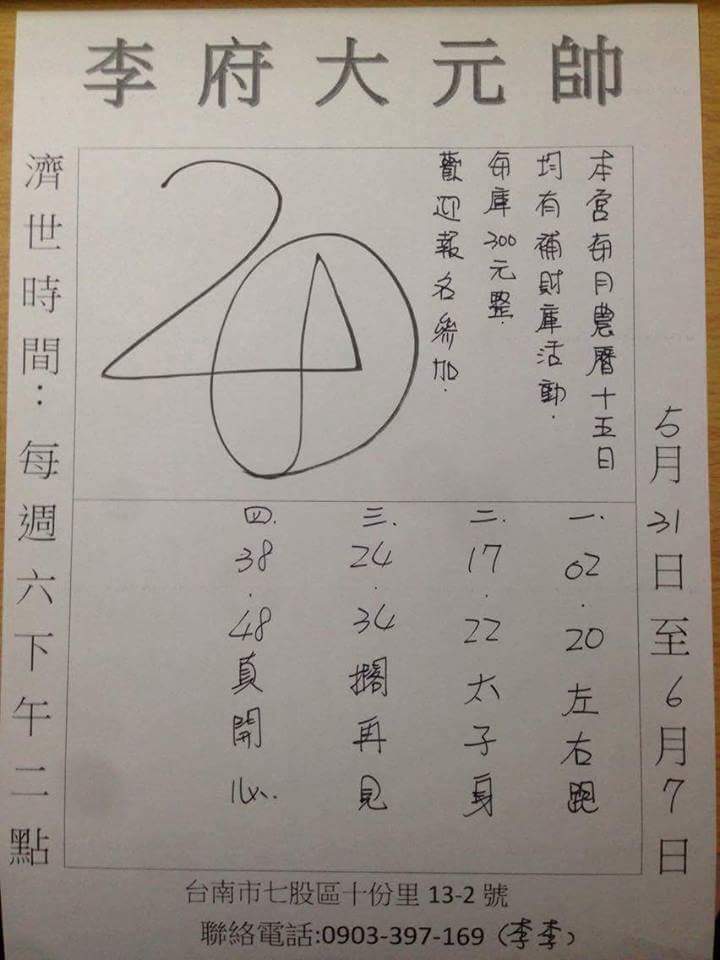 李府大元帥
本宮每月農曆十五日
均有補財庫活動.
每庫300元整.
歡迎報名參加.
20
5月31日至6月7日
一.02.20左右跑
二.17.22太子身
三.24.34擱再見
四.38.48真開心.
濟世時間：每週六下午二點
台南市七股區十份里13-2號
聯絡電話:0903-397-169（李李）